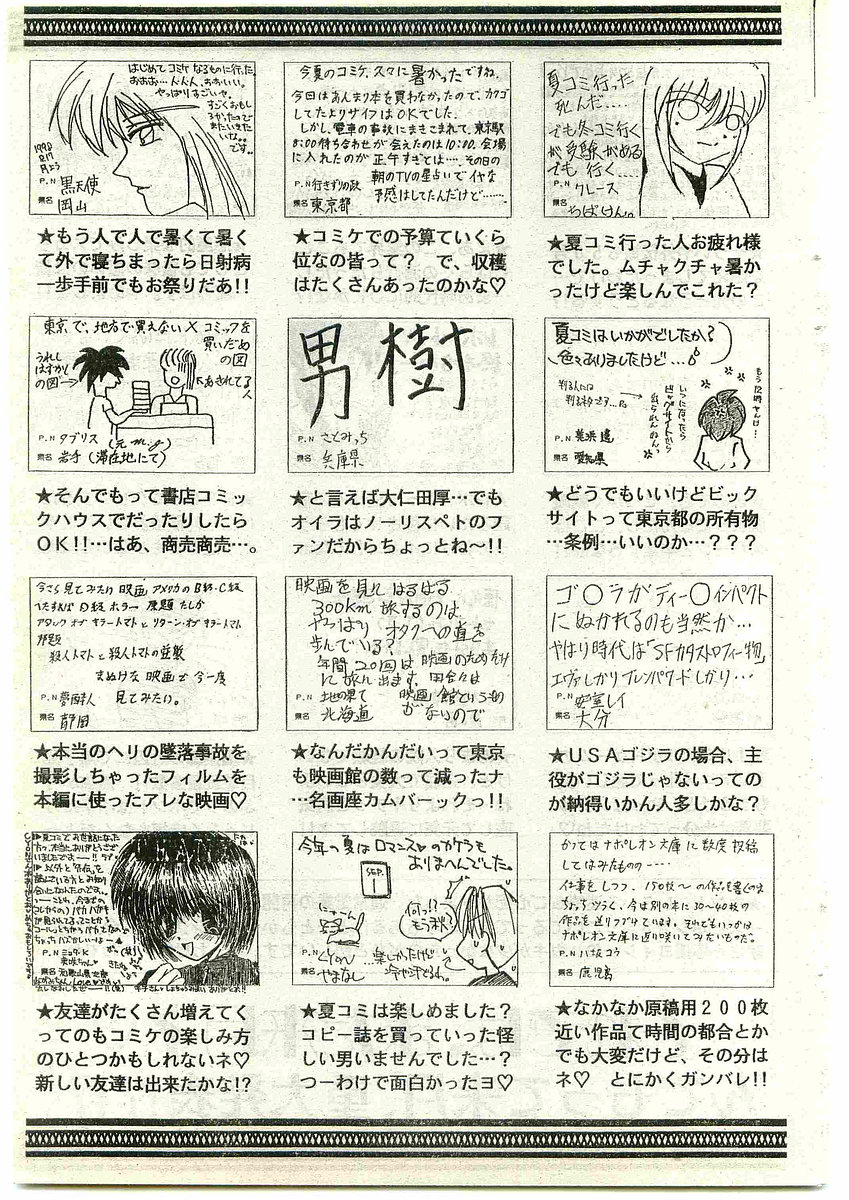 はじめてコミケなるものに行った。
おおお…人人人、おおいい。
やっぱりすごいや。
すごくおもし
ろかったので
またいきた
いな。
です。
P.N 黒天使
県名 岡山
★もう人で人で暑くて暑く
て外で寝ちまったら日射病
一歩手前でもお祭りだあ!!
今夏のコミケ、久々に暑かったですね。
今回はあんまり本を買わなかったので、カクゴ
してたよりサイフはOKでした。
しかし、電車の事故にまきこまれて、東京駅
8:00待ち合わせが会えたのは10:00。会場
に入れたのが正午すぎとは…。その日の
朝のTVの星占いでイヤな
予感はしてたんだけど……
P.N 行きずりの政
県名 東京都
★コミケでの予算ていくら
位なの皆って? で、収穫
はたくさんあったのかな♡
夏コミ行った
死んだ……
でも冬コミ行く
が受験がある
でも行く……
P.N クレース
県名 ちばけん。
★夏コミ行った人お疲れ様
でした。ムチャクチャ暑か
ったけど楽しんでこれた?
東京で、地方で買えない×コミックを
買いだめ
の図
うれし
はずかし
の図→
P.N タブリス(元m.g)
県名 岩手(滞在地にて)
★そんでもって書店コミッ
クハウスでだったりしたら
OK!!…はあ、商売商売…。
男樹
P.N さとみっち
県名 兵庫県
★と言えば大仁田厚…でも
オイラはノーリスペトのフ
ァンだからちょっとね〜!!
夏コミはいかがでしたか?
色々ありましたけど…
判る人には
判るネタです…
いつになったら
ビッグサイトから
P.N 美浜遠
県名 愛知県
★どうでもいいけどビック
サイトって東京都の所有物
…条例…いいのか…???
今さら見てみたい映画 アメリカのB級・C級
いたずればD級ホラー 原題たしか
アタックオブキラートマトとリターンオブキラートマト
邦題
殺人トマトと殺人トマトの逆襲
まぬけな映画で今一度
見てみたい。
県名 静岡
★本当のヘリの墜落事故を
撮影しちゃったフィルムを
本編に使ったアレな映画♡
映画を見にはるばる
300km旅するのは
やっぱりオタクへの道を
歩んでいる?
年間20回は映画のためだけ
に旅に出ます。田舎には
映画館というもの
がないので
P.N 地の果て
県名 北海道
★なんだかんだいって東京
も映画館の数って減ったナ
…名画座カムバーックっ!!
ゴ〇ラがディー〇インパクト
にぬかれるのも当然か…
やはり時代は「SFカタストロフィー物」
エヴァしかりブレンパワードしかり…
P.N 安室レイ
県名 大分
★USAゴジラの場合、主
役がゴジラじゃないっての
が納得いかん人多しかな?
夏コミでお世話になった
方々、本当にありがとうござ
いましたでーす!!
県名 和歌山県
★友達がたくさん増えてく
ってのもコミケの楽しみ方
のひとつかもしれないネ♡
新しい友達は出来たかな!?
今年の夏はロマンス♡のカケラも
ありまへんでした。
SEP.
1
何っ!?
もう秋?
…楽しかったけど
県名 やまなし
★夏コミは楽しめました?
コピー誌を買っていった怪
しい男いませんでした…?
つーわけで面白かったヨ♡
かつてはナポレオン文庫に数度投稿
してはみたものの……
仕事をしつつ、150枚〜の作品を書くのは
ちょっとツラく、今は別の本に30〜40枚の
作品を送りつづけています。それでもいつかは
ナポレオン文庫に返り咲いてみたいものだ。
P.N 八坂コウ
県名 鹿児島
★なかなか原稿用200枚
近い作品て時間の都合とか
でも大変だけど、その分は
ネ♡ とにかくガンバレ!!